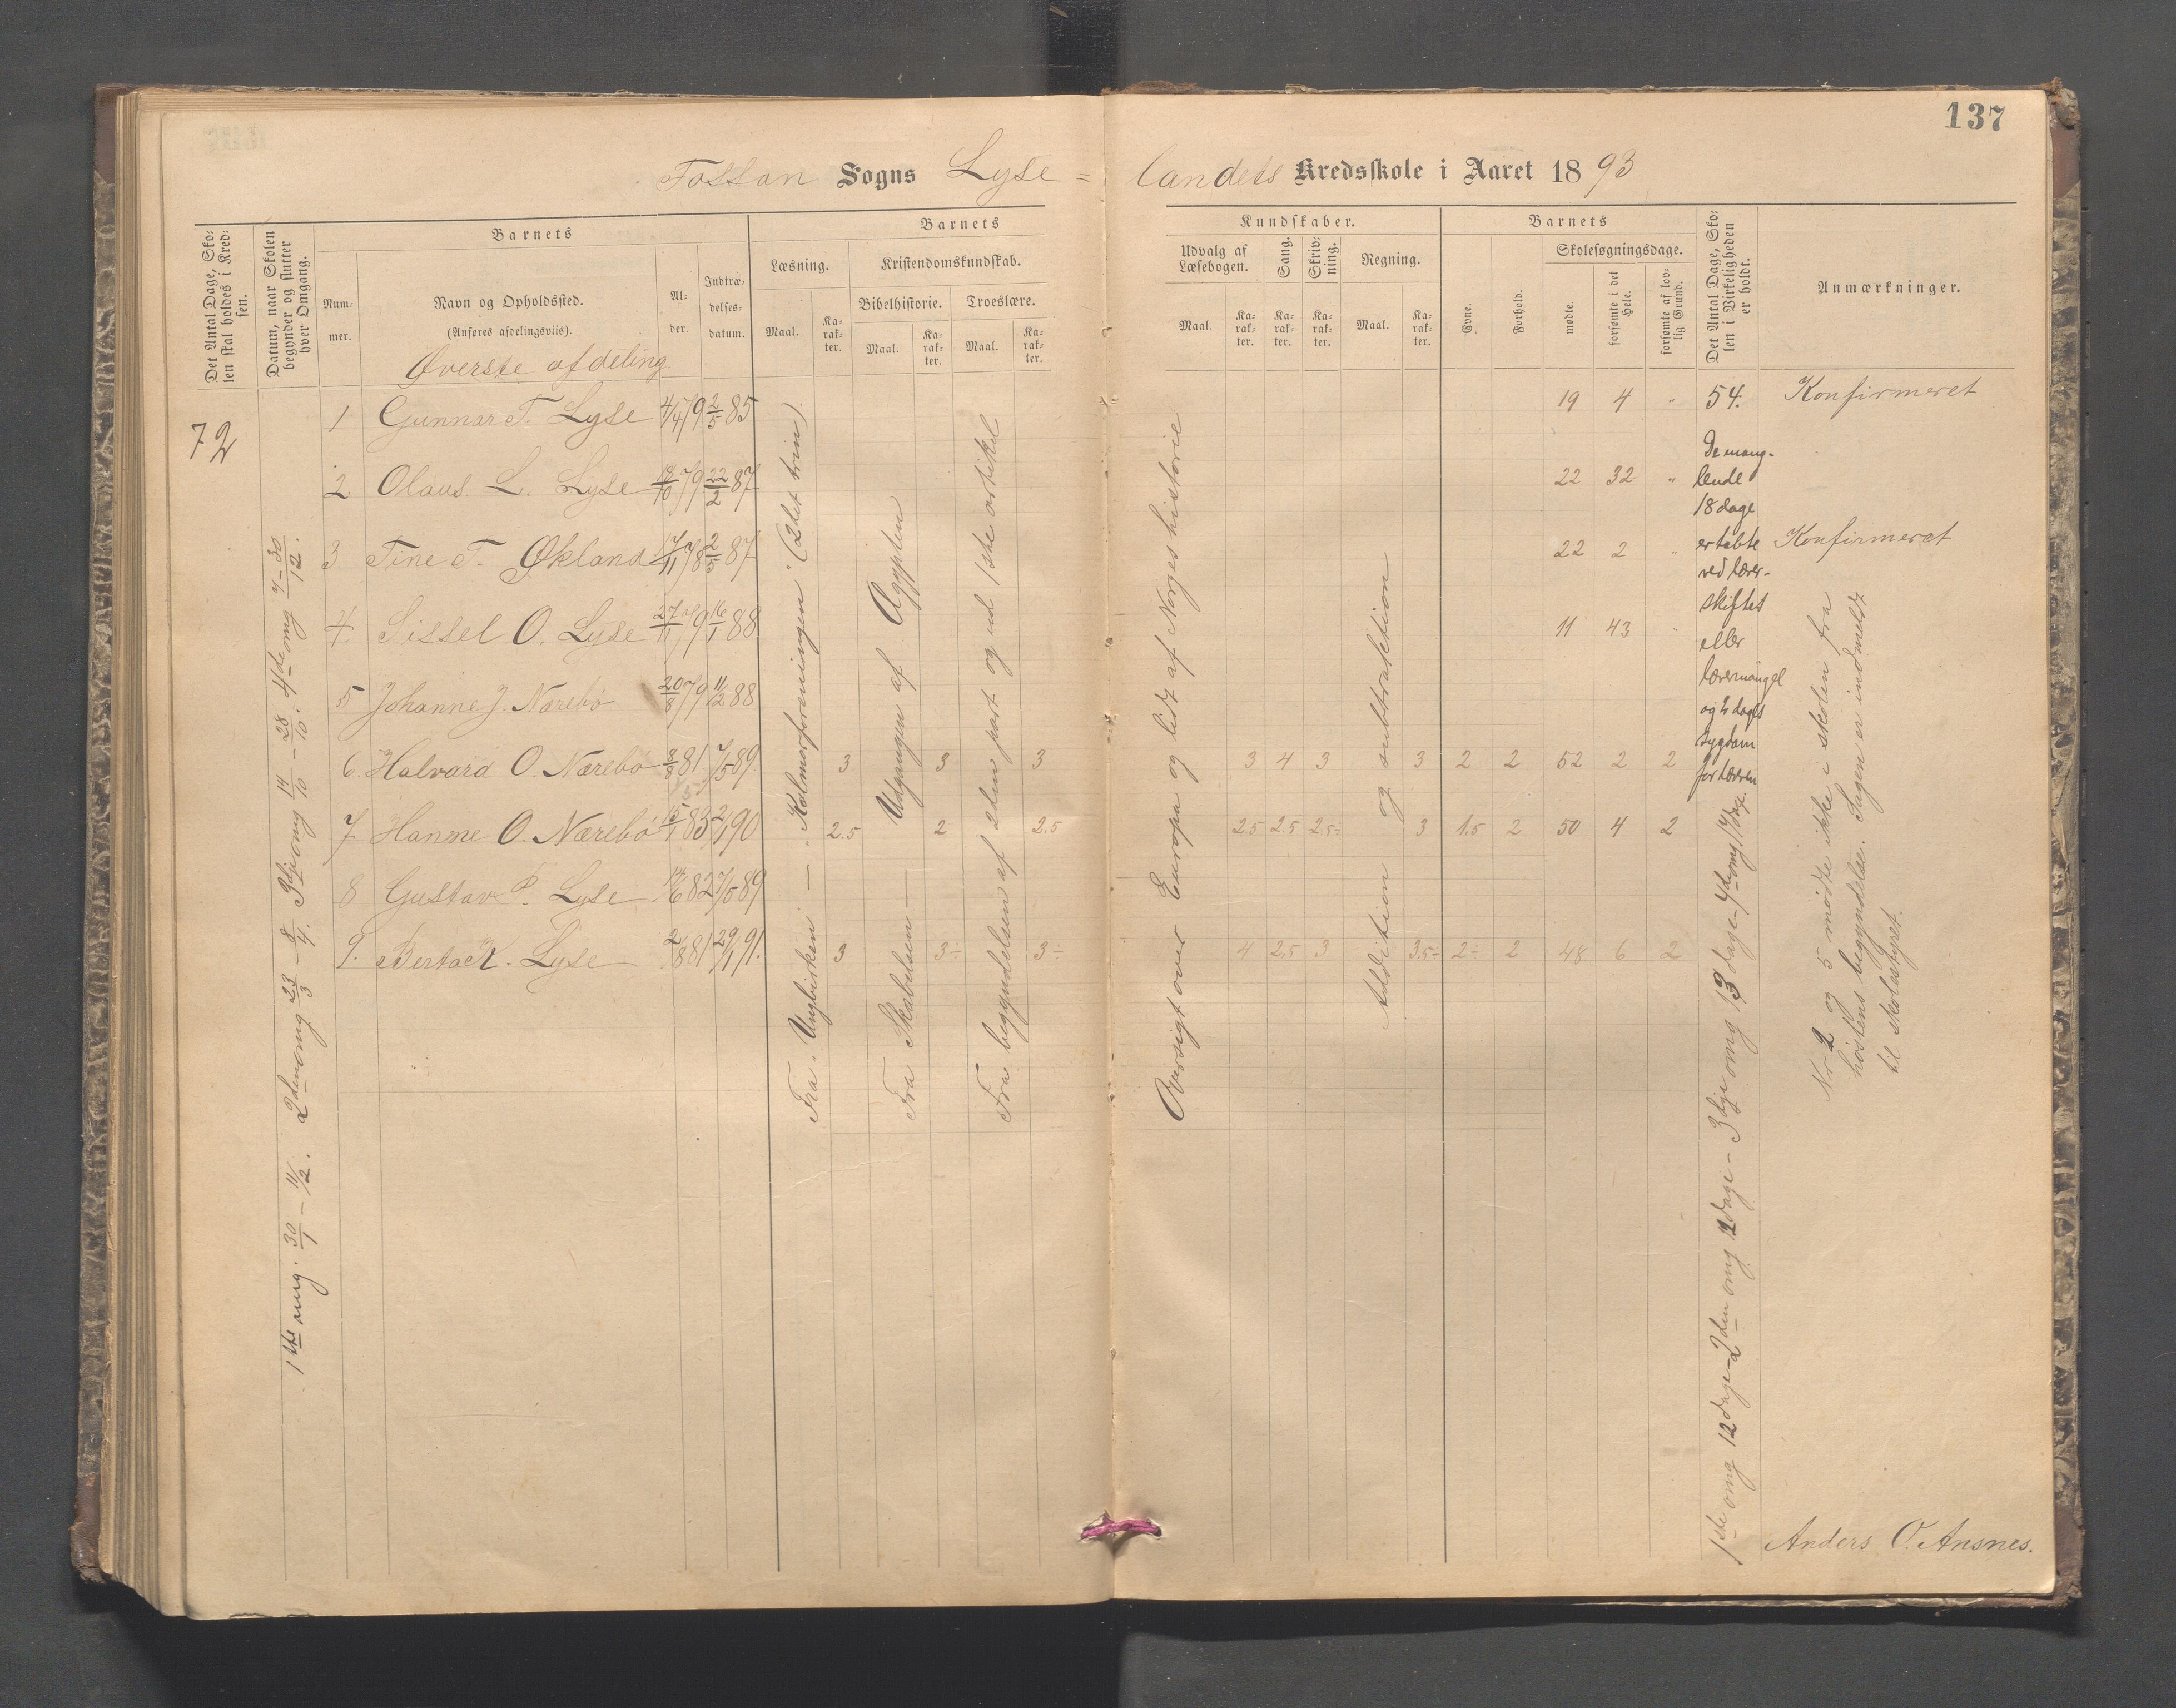 137
Fossan Sogns Lyse=
landets Kredsskole i Aaret 1893
Det Antal Dage, Skolen skal holdes i Kredsen.
Datum, naar Skolen begynder og slutter hver Omgang.
Barnets
Nummer.
Navn og Opholdssted.
(Anføres afdelingsviis).
Alder.
Indtrædelsesdatum.
Barnets
Læsning.
Maal.
Karakter.
Kristendomskundskab.
Bibelhistorie.
Maal.
Karakter.
Troeslære.
Maal.
Karakter.
Kundskaber.
Udvalg af Læsebogen.
Maal.
Karakter.
Sang.
Karakter.
Skrivning.
Karakter.
Regning.
Maal.
Karakter.
Barnets
Evne.
Forhold.
Skolesøgningsdage.
mødte.
forsømte i det Hele.
forsømte af lovlig Grund.
Det Antal Dage, Skolen i Virkeligheden er holdt.
Anmærkninger.
Øverste afdeling
72
1 Gunnar T. Lyse 4/4 79 2/5 85 19 4 " 54. Konfirmeret
2 Olaus L. Lyse 79 22/2 87 22 32 "
3 Tine T. Økland 17/11 78 2/5 87 22 2 " Konfirmeret
4. Sissel O. Lyse 27/11 79 16/1 88 11 43
5 Johanne J. Nærebø 79 11/2 88
6. Halvard O. Nærebø 81 7/5 89 3 3 3 3 4 3 3 2 2 52 2 2
7 Hanne O. Nærebø 15/1 83 2/1 90 2.5 2 2.5 2.5 2.5 2.5÷ 3 1.5 2 50 4 2
8 Gustav P. Lyse 14/6 82 7/5 89
9. Berta K. Lyse 2/8 81 29/1 91. 3 3÷ 3÷ 4 2.5 3 3.5÷ 2÷ 2 48 6 2
1ste omg. 30/1 – 11/2. 2den omg 23/3 – 8/4. 3dje omg 14/10 – 28/10. 4de omg 7 – 30/12.
Fra "Ungbirken" – "Kalmarforeningen" (2det trin)
Fra Skabelsen – Udgangen af Ægypten
Fra begyndelsen af 2den part og ind 1ste artikel
Oversigt over Europa og lidt af Norges historie
Addition og subtraktion
De mang-
lende
18 dage
er tabte
ved lærer-
skiftet
eller
lærermangel
og 2 dages
sygdom
for læreren
1ste omg 12 dage – 2den omg 12 dage – 3dje omg 13 dage – 4de omg 17 dage.
Nr 2 og 5 mødte ikke i skolen fra
høstens begyndelse. Sagen er indmeldt
til skolestyret.
Anders O. Ansnes.